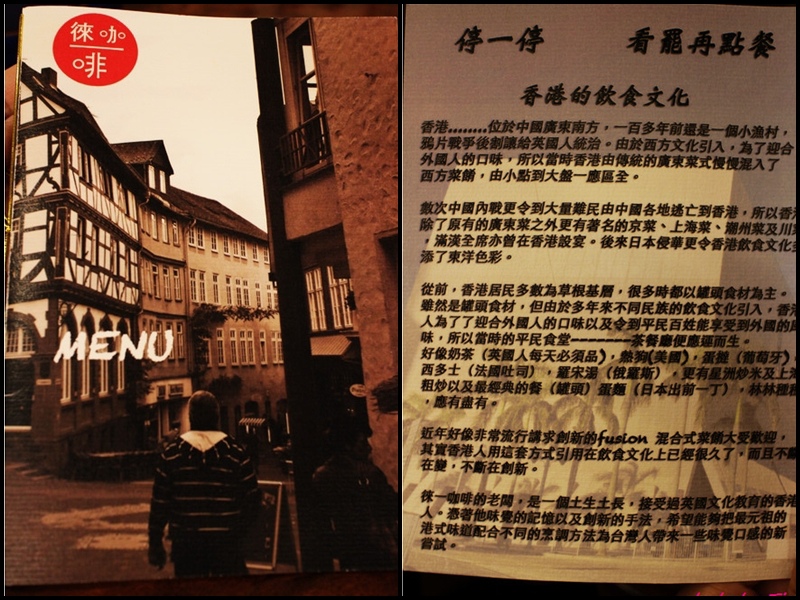 徠咖
啡
MENU
停一停 看罷再點餐
香港的飲食文化
香港........位於中國廣東南方，一百多年前還是一個小漁村，
鴉片戰爭後割讓給英國人統治。由於西方文化引入，為了迎合
外國人的口味，所以當時香港由傳統的廣東菜式慢慢混入了
西方菜餚，由小點到大盤一應區全。
數次中國內戰更令到大量難民由中國各地逃亡到香港，所以香
除了原有的廣東菜之外更有著名的京菜、上海菜、潮州菜及川
，滿漢全席亦曾在香港設宴。後來日本侵華更令香港飲食文化
添了東洋色彩。
從前，香港居民多數為草根基層，很多時都以罐頭食材為主。
雖然是罐頭食材，但由於多年來不同民族的飲食文化引入，香
人為了了迎合外國人的口味以及令到平民百姓能享受到外國的
味，所以當時的平民食堂--------茶餐廳便應運而生。
好像奶茶（英國人每天必須品），熱狗(美國)，蛋撻（葡萄牙）
西多士（法國吐司），羅宋湯（俄羅斯），更有星洲炒米及上
粗炒以及最經典的餐（罐頭）蛋麵（日本出前一丁），林林種
，應有盡有。
近年好像非常流行講求創新的fusion 混合式菜餚大受歡迎，
其實香港人用這套方式引用在飲食文化上已經很久了，而且不
在變，不斷在創新。
徠一咖啡的老闆，是一個土生土長，接受過英國文化教育的香
人。憑著他味覺的記憶以及創新的手法，希望能夠把最元祖的
港式味道配合不同的烹調方法為台灣人帶來一些味覺口感的新
嘗試。